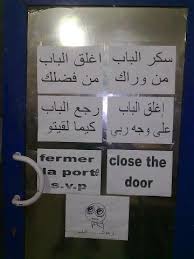 سكر الباب
من وراك
اغلق الباب
من فضلك
إغلق الباب
على وجه ربي
رجع الباب
كيما لقيتو
fermer
la port
s.v.p
close the
door